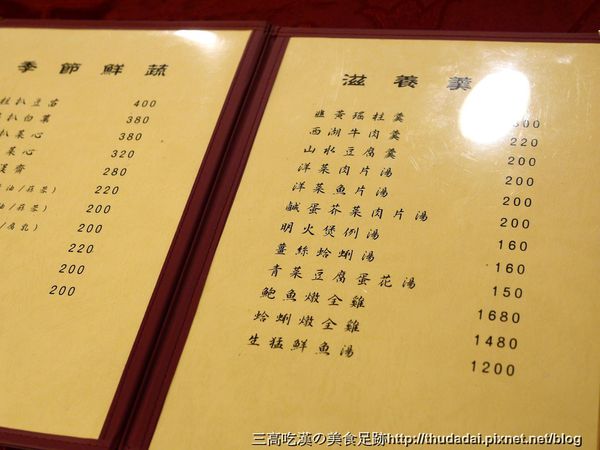 季節鮮蔬
扒豆苗 400
扒白菓 380
扒菜心 380
菜心 320
齋 280
油/蒜蓉) 220
/蒜蓉) 200
/腐乳) 200
220
200
200
滋養羹
韮黃瑶柱羹 300
西湖牛肉羹 220
山水豆腐羹 200
洋菜肉片湯 200
洋菜魚片湯 200
鹹蛋芥菜肉片湯 200
明火煲例湯 160
薑絲蛤蜊湯 160
青菜豆腐蛋花湯 150
鮑魚燉全雞 1680
蛤蜊燉全雞 1480
生猛鮮魚湯 1200
三高吃漢の美食足跡http://thudadai.pixnet.net/blog